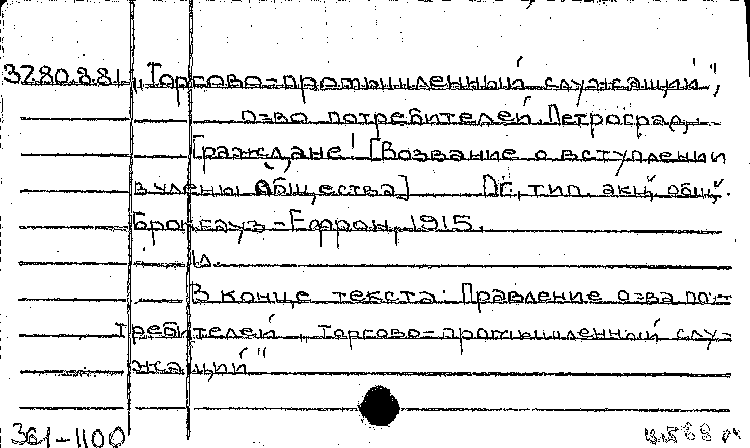 37.80.8.81 „Торгово-промышленный служащий",
о-во потребителей. Петроград.
Граждане! [Воззвание о вступлении
в члены Общества] Пг., тип. акц. общ.
Брокгауз-Ефрон, 1915.
1 л.
В конце текста: Правление о-ва по-
требителей „Торгово-промышленный слу-
жащий"
361-1100